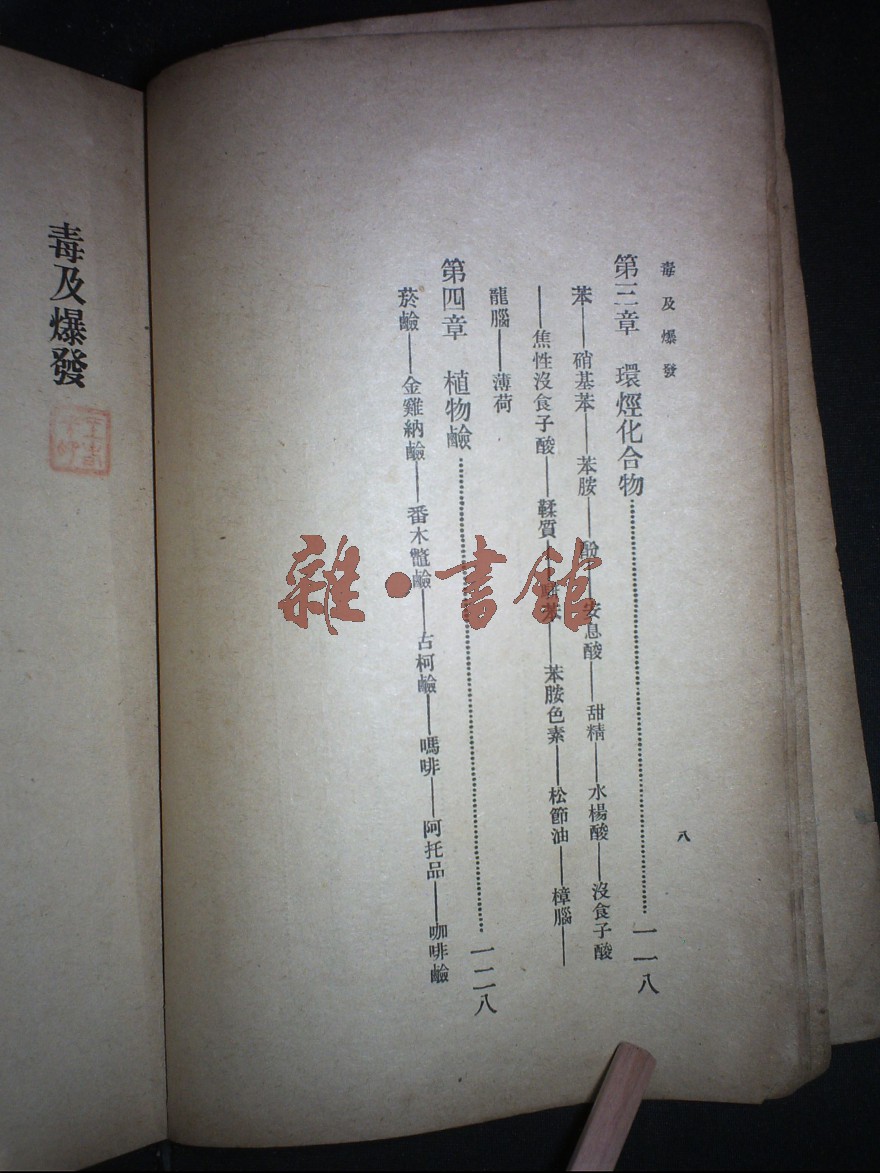 毒及爆發
八
第三章　環烴化合物 一一八
苯——硝基苯——苯胺——酚——安息酸——甜精——水楊酸——沒食子酸
——焦性沒食子酸——鞣質——苯——苯胺色素——松節油——樟腦——
龍腦——薄荷
第四章　植物鹼 一二八
菸鹼——金雞納鹼——番木鼈鹼——古柯鹼——嗎啡——阿托品——咖啡鹼
毒及爆發
雜·書館